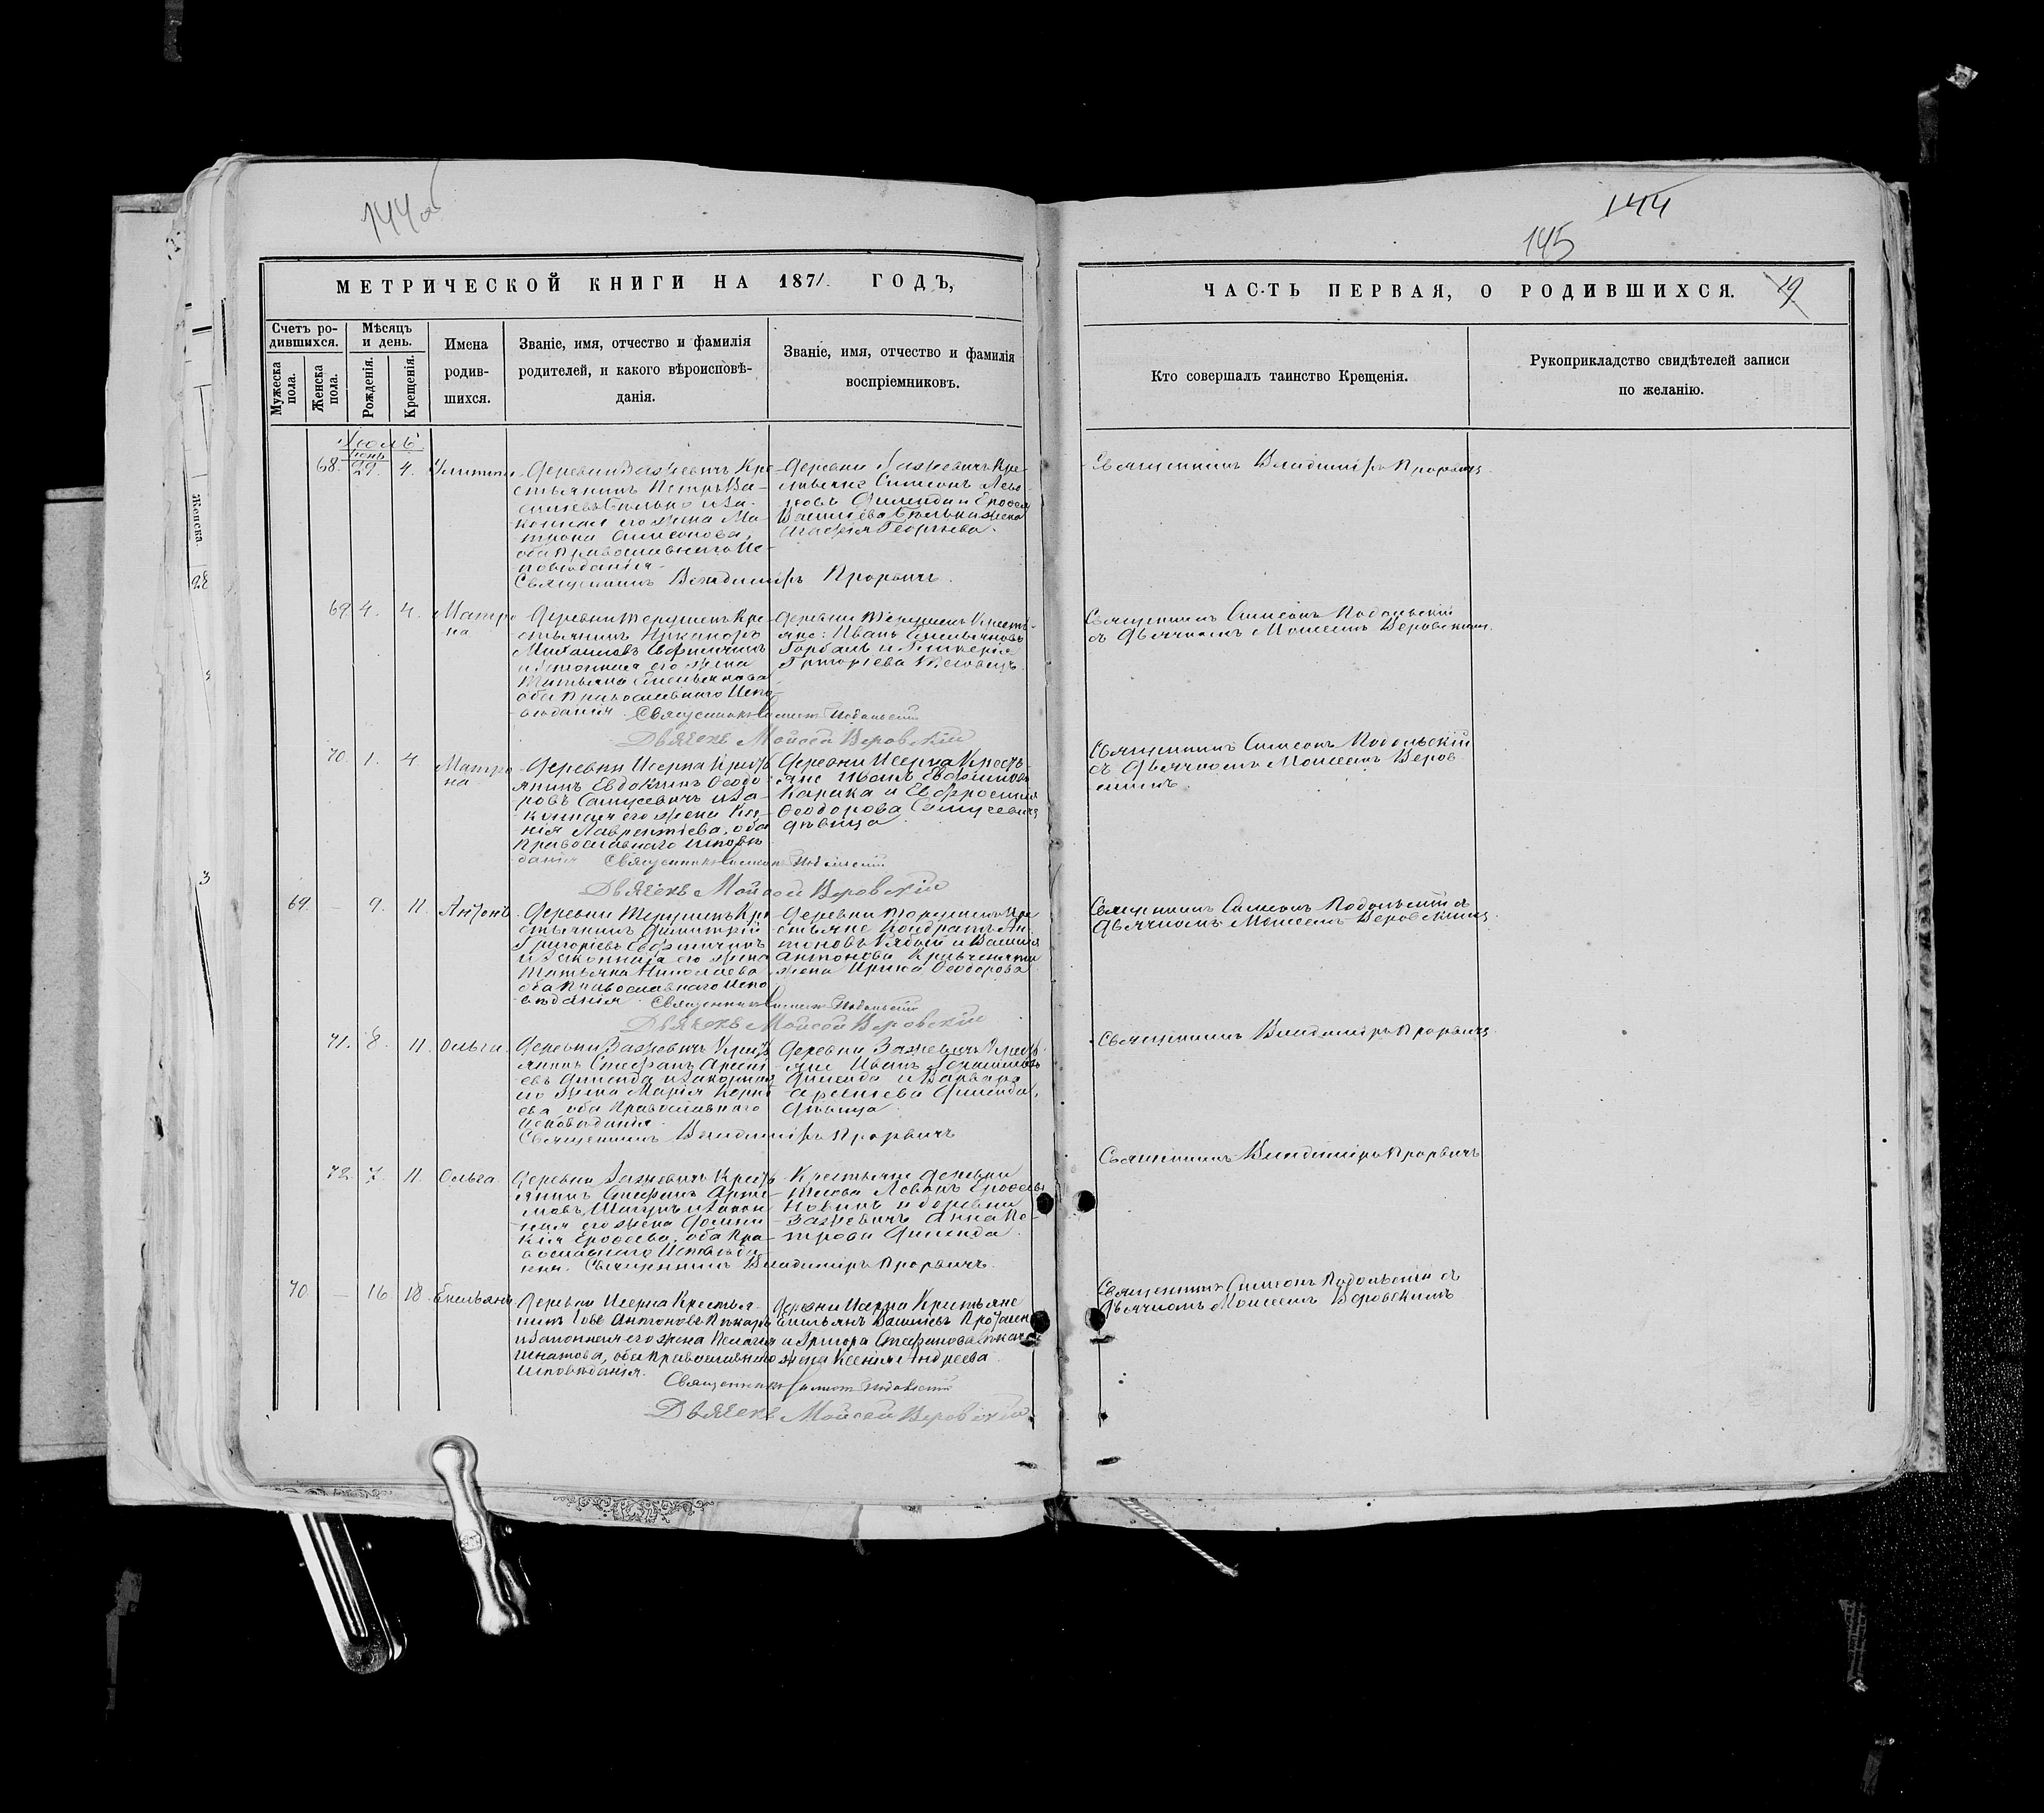 144об
144
145
МЕТРИЧЕСКОЙ КНИГИ НА 1871 ГОДЪ,
Счетъ ро-
дившихся.
Мѣсяцъ
и день.
Мужеска
пола.
Женска
пола.
Рожденія.
Крещенія.
Имена
родив-
шихся.
Званіе, имя, отчество и фамилія
родителей, и какого вѣроисповѣ-
данія.
Званіе, имя, отчество и фамилія
воспріемниковъ.
Іюль
68. 29. 4.
Деревни Зажевичъ Кре-
стьянинъ Петръ Ва-
конная его жена Ма-
трона Симеонова,
оба Православнаго Ис-
повѣданія.
Священникъ Владиміръ Прорвичъ.
Деревни Зажевичъ Кре-
стьяне Симеонъ
Агафія Георгіева.
69. 4. 4. Матро
на
Деревни Терушекъ Кре-
стьянинъ Никаноръ
Михаиловъ
и Законная его жена
Татьяна Емельянова
оба Православнаго Испо-
вѣданія. Священникъ Симеонъ Подольскій
Дьячекъ Мойсей Веровскій
Деревни Терушекъ Кресть-
яне: Иванъ Емельяновъ
Горбачъ и Гликерія
Григоріева
70. 1. 4 Матро
на
Деревни Исерна Крестъ
янинъ Евдокимъ Ѳеодо
ровъ Самусевичъ и За-
конная его жена Ксе-
нія Лаврентіева, оба
Православнаго Исповѣ
данія Священникъ Симеонъ Подольскій
Дьячекъ Мойсей Веровскій
Деревни Исерна Крестъ-
яне Иванъ Евфимовъ
и Евфросинія
Ѳеодорова Самусевичъ
дѣвица
69. – 9. 11. Антонъ.
Деревни Терушекъ Кре
стьянинъ Димитрій
Григоріевъ
и Законная его жена
Татьяна Николаева
оба Православнаго Испо
вѣданія. Священникъ Симеонъ Подольскій
Дьячекъ Мойсей Веровскій
Деревни Терушекъ Кре
стьяне Кондратъ Ан-
тоновъ и
Антонова
жена Ирина Ѳеодорова
71. 8. 11. Ольга.
Деревни Зажевичъ Крестъ
янинъ Стефанъ Арсені
евъ и Законная
его жена Марія Корни
ева, оба Православнаго
Исповѣданія.
Священникъ Владиміръ Прорвичъ
Деревни Зажевичъ Крестъ-
яне Иванъ Герасимовъ
и Варвара
Арсеніева
дѣвица
72. 7. 11. Ольга
Деревни Зажевичъ Крестъ
янинъ Стефанъ Арте-
мовъ и Закон
ная его жена Домни
кія Ероѳеева, оба Пра-
вославнаго Исповѣда-
нія. Священникъ Владиміръ Прорвичъ.
Крестьяне деревни
и деревни
Зажевичъ Анна Пе-
трова
70 – 16 18. Емельянъ
Деревни Исерна Крестья-
нинъ Іовъ Антоновъ
и Законная его жена Пелагія
Игнатова, оба Православнаго
Исповѣданія.
Священникъ Симеонъ Подольскій
Дьячекъ Мойсей Веровскій.
Деревни Исерна Крестьяне
Емельянъ Василіевъ
и Григора Стефанова
жена Ксенія Андреева.
ЧАСТЬ ПЕРВАЯ, О РОДИВШИХСЯ.
19
Кто совершалъ таинство Крещенія.
Рукоприкладство свидѣтелей записи
по желанію.
Священникъ Владиміръ Прорвичъ
Священникъ Симеонъ Подольскій
съ Дьячкомъ Моисеемъ Веровскимъ.
Священникъ Симеонъ Подольскій
съ Дьячкомъ Моисеемъ Веров
скимъ
Священникъ Симеонъ Подольскій съ
Дьячкомъ Моисеемъ Веровскимъ.
Священникъ Владиміръ Прорвичъ.
Священникъ Владиміръ Прорвичъ
Священникъ Симеонъ Подольскій съ
Дьячкомъ Моисеемъ Веровскимъ
Женска.
28
3